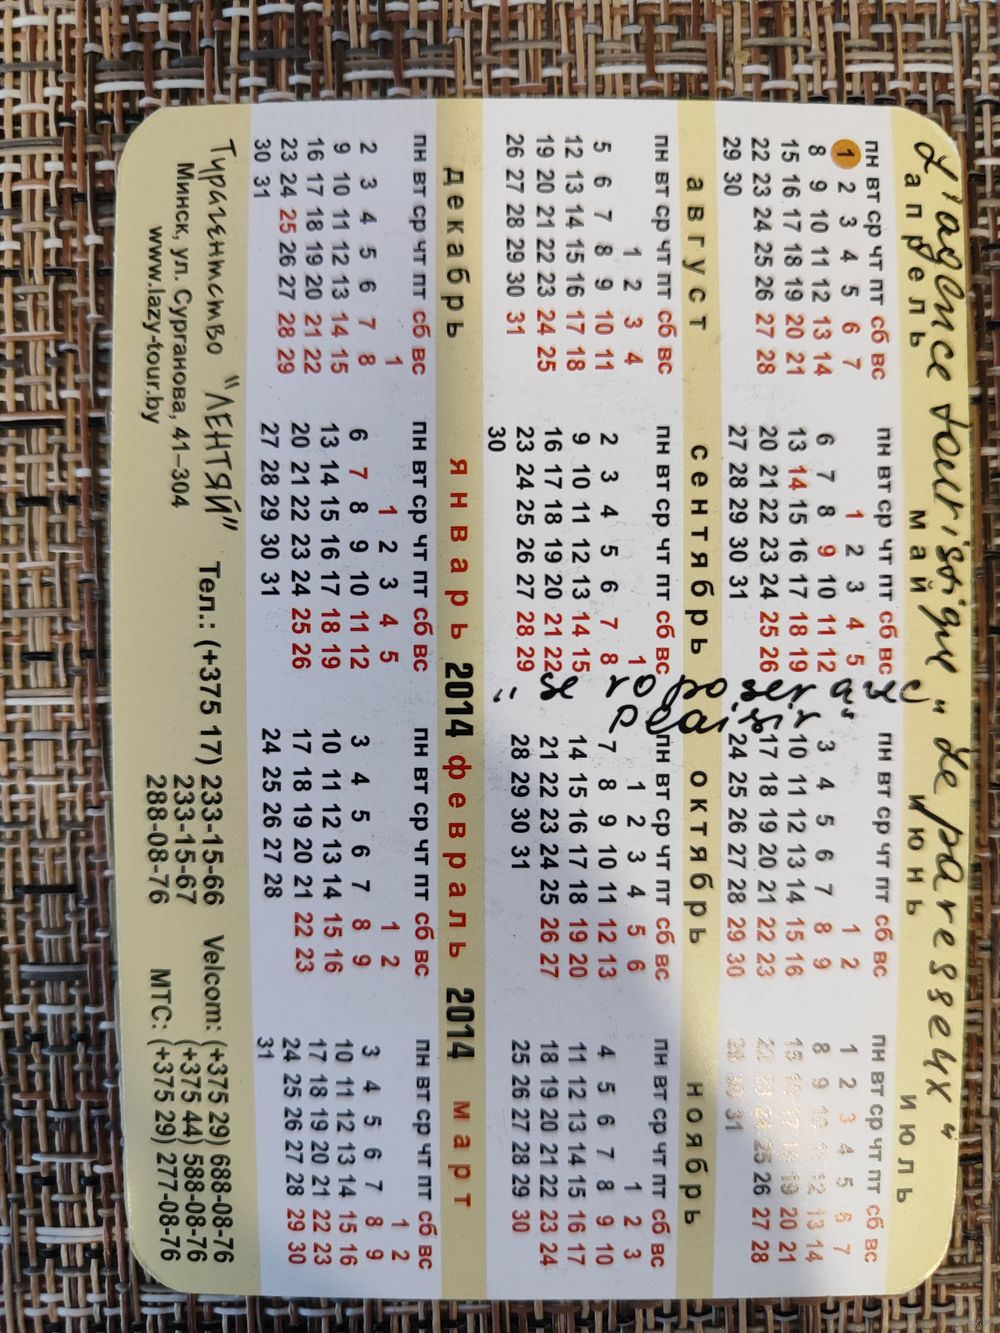 L'agence touristique "Le paresseux"
апрель
пн вт ср чт пт сб вс
1 2 3 4 5 6 7
8 9 10 11 12 13 14
15 16 17 18 19 20 21
22 23 24 25 26 27 28
29 30
май
пн вт ср чт пт сб вс
1 2 3 4 5
6 7 8 9 10 11 12
13 14 15 16 17 18 19
20 21 22 23 24 25 26
27 28 29 30 31
июнь
пн вт ср чт пт сб вс
1 2
3 4 5 6 7 8 9
10 11 12 13 14 15 16
17 18 19 20 21 22 23
24 25 26 27 28 29 30
июль
пн вт ср чт пт сб вс
1 2 3 4 5 6 7
8 9 10 11 12 13 14
15 16 17 18 19 20 21
22 23 24 25 26 27 28
29 30 31
август
пн вт ср чт пт сб вс
1 2 3 4
5 6 7 8 9 10 11
12 13 14 15 16 17 18
19 20 21 22 23 24 25
26 27 28 29 30 31
сентябрь
пн вт ср чт пт сб вс
1
2 3 4 5 6 7 8
9 10 11 12 13 14 15
16 17 18 19 20 21 22
23 24 25 26 27 28 29
30
октябрь
пн вт ср чт пт сб вс
1 2 3 4 5 6
7 8 9 10 11 12 13
14 15 16 17 18 19 20
21 22 23 24 25 26 27
28 29 30 31
ноябрь
пн вт ср чт пт сб вс
1 2 3
4 5 6 7 8 9 10
11 12 13 14 15 16 17
18 19 20 21 22 23 24
25 26 27 28 29 30
декабрь
пн вт ср чт пт сб вс
1
2 3 4 5 6 7 8
9 10 11 12 13 14 15
16 17 18 19 20 21 22
23 24 25 26 27 28 29
30 31
январь 2014
пн вт ср чт пт сб вс
1 2 3 4 5
6 7 8 9 10 11 12
13 14 15 16 17 18 19
20 21 22 23 24 25 26
27 28 29 30 31
февраль 2014
пн вт ср чт пт сб вс
1 2
3 4 5 6 7 8 9
10 11 12 13 14 15 16
17 18 19 20 21 22 23
24 25 26 27 28
март
пн вт ср чт пт сб вс
1 2
3 4 5 6 7 8 9
10 11 12 13 14 15 16
17 18 19 20 21 22 23
24 25 26 27 28 29 30
31
Турагентство "ЛЕНТЯЙ"
Минск, ул. Сурганова, 41–304
www.lazy-tour.by
Тел.: (+375 17) 233-15-66
233-15-67
288-08-76
Velcom: (+375 29) 688-08-76
(+375 44) 588-08-76
МТС: (+375 29) 277-08-76